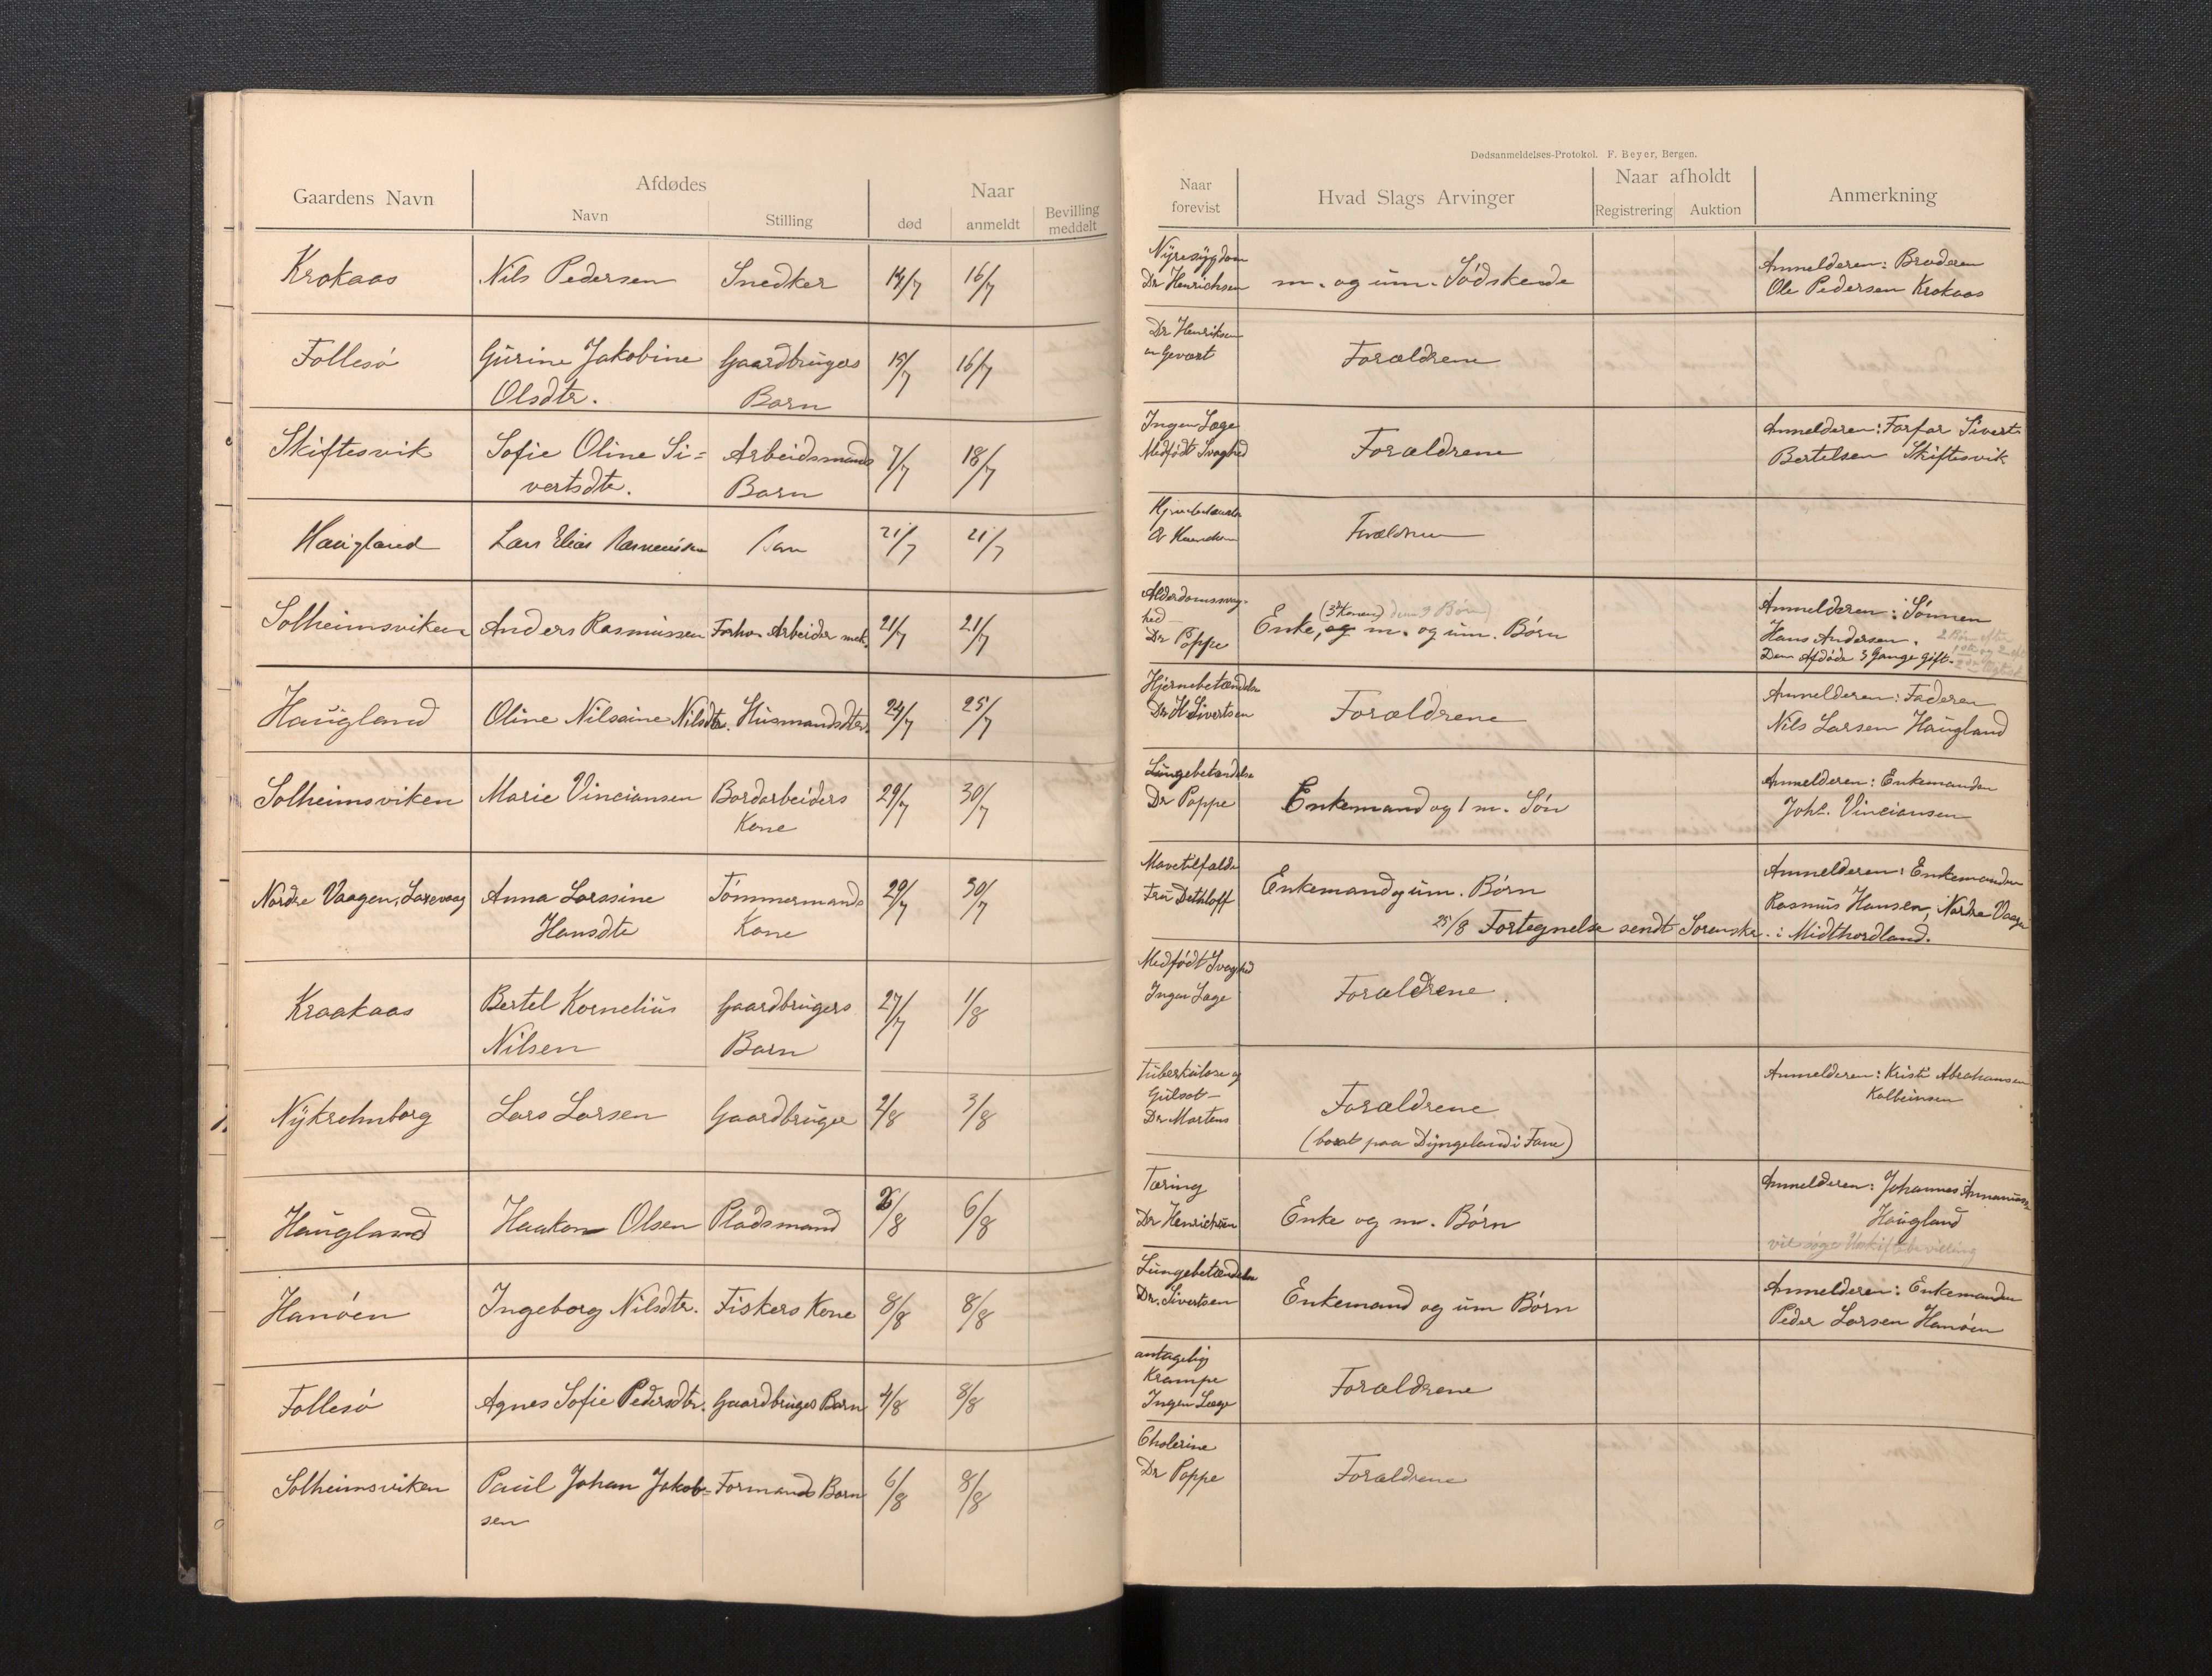 Dødsanmeldelses-Protokol. F. Beyer, Bergen.
Gaardens Navn
Afdødes
Navn
Stilling
Naar
død
anmeldt
Bevilling
meddelt
Naar
forevist
Hvad Slags Arvinger
Naar afholdt
Registrering
Auktion
Anmerkning
Krokaas
Nils Pedersen
Snedker
14/7
16/7
Nyresygdom
Dr Henrichsen
m. og um. Södskende
Anmelderen: Broderen
Ole Pedersen Krokaas
Follesö
Gurine Jakobine
Olsdtr.
Gaardbrugers
Barn
15/7
16/7
Dr Henriksen
Forældrene
Skiftesvik
Sofie Oline Si=
vertsdtr.
Arbeidsmands
Barn
7/7
18/7
Ingen Læge
Medfödt Svaghed
Forældrene
Anmelderen: Farfar Sivert
Bertelsen Skiftesvik
Haugland
Lars Elias Rasmussen
21/7
21/7
Forældrene
Solheimsviken
Anders Rasmussen
Forhen Arbeider mek.
21/7
21/7
Alderdomssvag-
hed
Dr Poppe
(3die Konen)
Enke, og m. og um. Börn
Anmelderen: Sönnen
Hans Andersen.
Den Afdöde 3 Gange gift.
Haugland
Oline Nilsine Nilsdtr.
Husmandsdtr.
24/7
25/7
Hjernebetændelse
Dr H Sivertsen
Forældrene
Anmelderen: Faderen
Nils Larsen Haugland
Solheimsviken
Marie Vinciansen
Bordarbeiders
Kone
29/7
30/7
Lungebetændelse
Dr Poppe
Enkemand og 1 m. Sön
Anmelderen: Enkemanden
Johs. Vinciansen
Nordre Vaagen, Laxevaag
Anna Larssine
Hansdtr
Tömmermands
Kone
29/7
30/7
Mavetilfælde
Fru Dethloff
Enkemand og um. Börn
25/8 Fortegnelse sendt Sorenskr. i Midthordland.
Anmelderen: Enkemanden
Rasmus Hansen, Nordre Vaagen
Kraakaas
Bertel Kornelius
Nilsen
Gaardbrugers
Barn
27/7
1/8
Medfödt Svaghed
Ingen Læge
Forældrene
Nykrohnborg
Lars Larsen
Gaardbruger
2/8
3/8
Tuberkulose og
Gulsot-
Dr Martens
Forældrene
(bosat paa Dyngeland i Fane)
Anmelderen: Kristi Abrahamsen
Kolbeinsen
Haugland
Haakon Olsen
Pladsmand
6/8
Tæring
Dr Henrichsen
Enke og m. Börn
Anmelderen: Johannes
Haugland
vil söge Uskiftebevilling
Hanöen
Ingeborg Nilsdtr.
Fiskers Kone
8/8
8/8
Lungebetændelse
Dr. Sivertsen
Enkemand og um Börn
Anmelderen: Enkemanden
Peder Larsen Hanöen
Follesö
Agnes Sofie Pedersdtr.
Gaardbrugers Barn
4/8
8/8
antagelig
Krampe
Ingen Læge
Forældrene
Solheimsviken
Paul Johan Jakob=
sen
Formands Barn
6/8
8/8
Cholerine
Dr Poppe
Forældrene